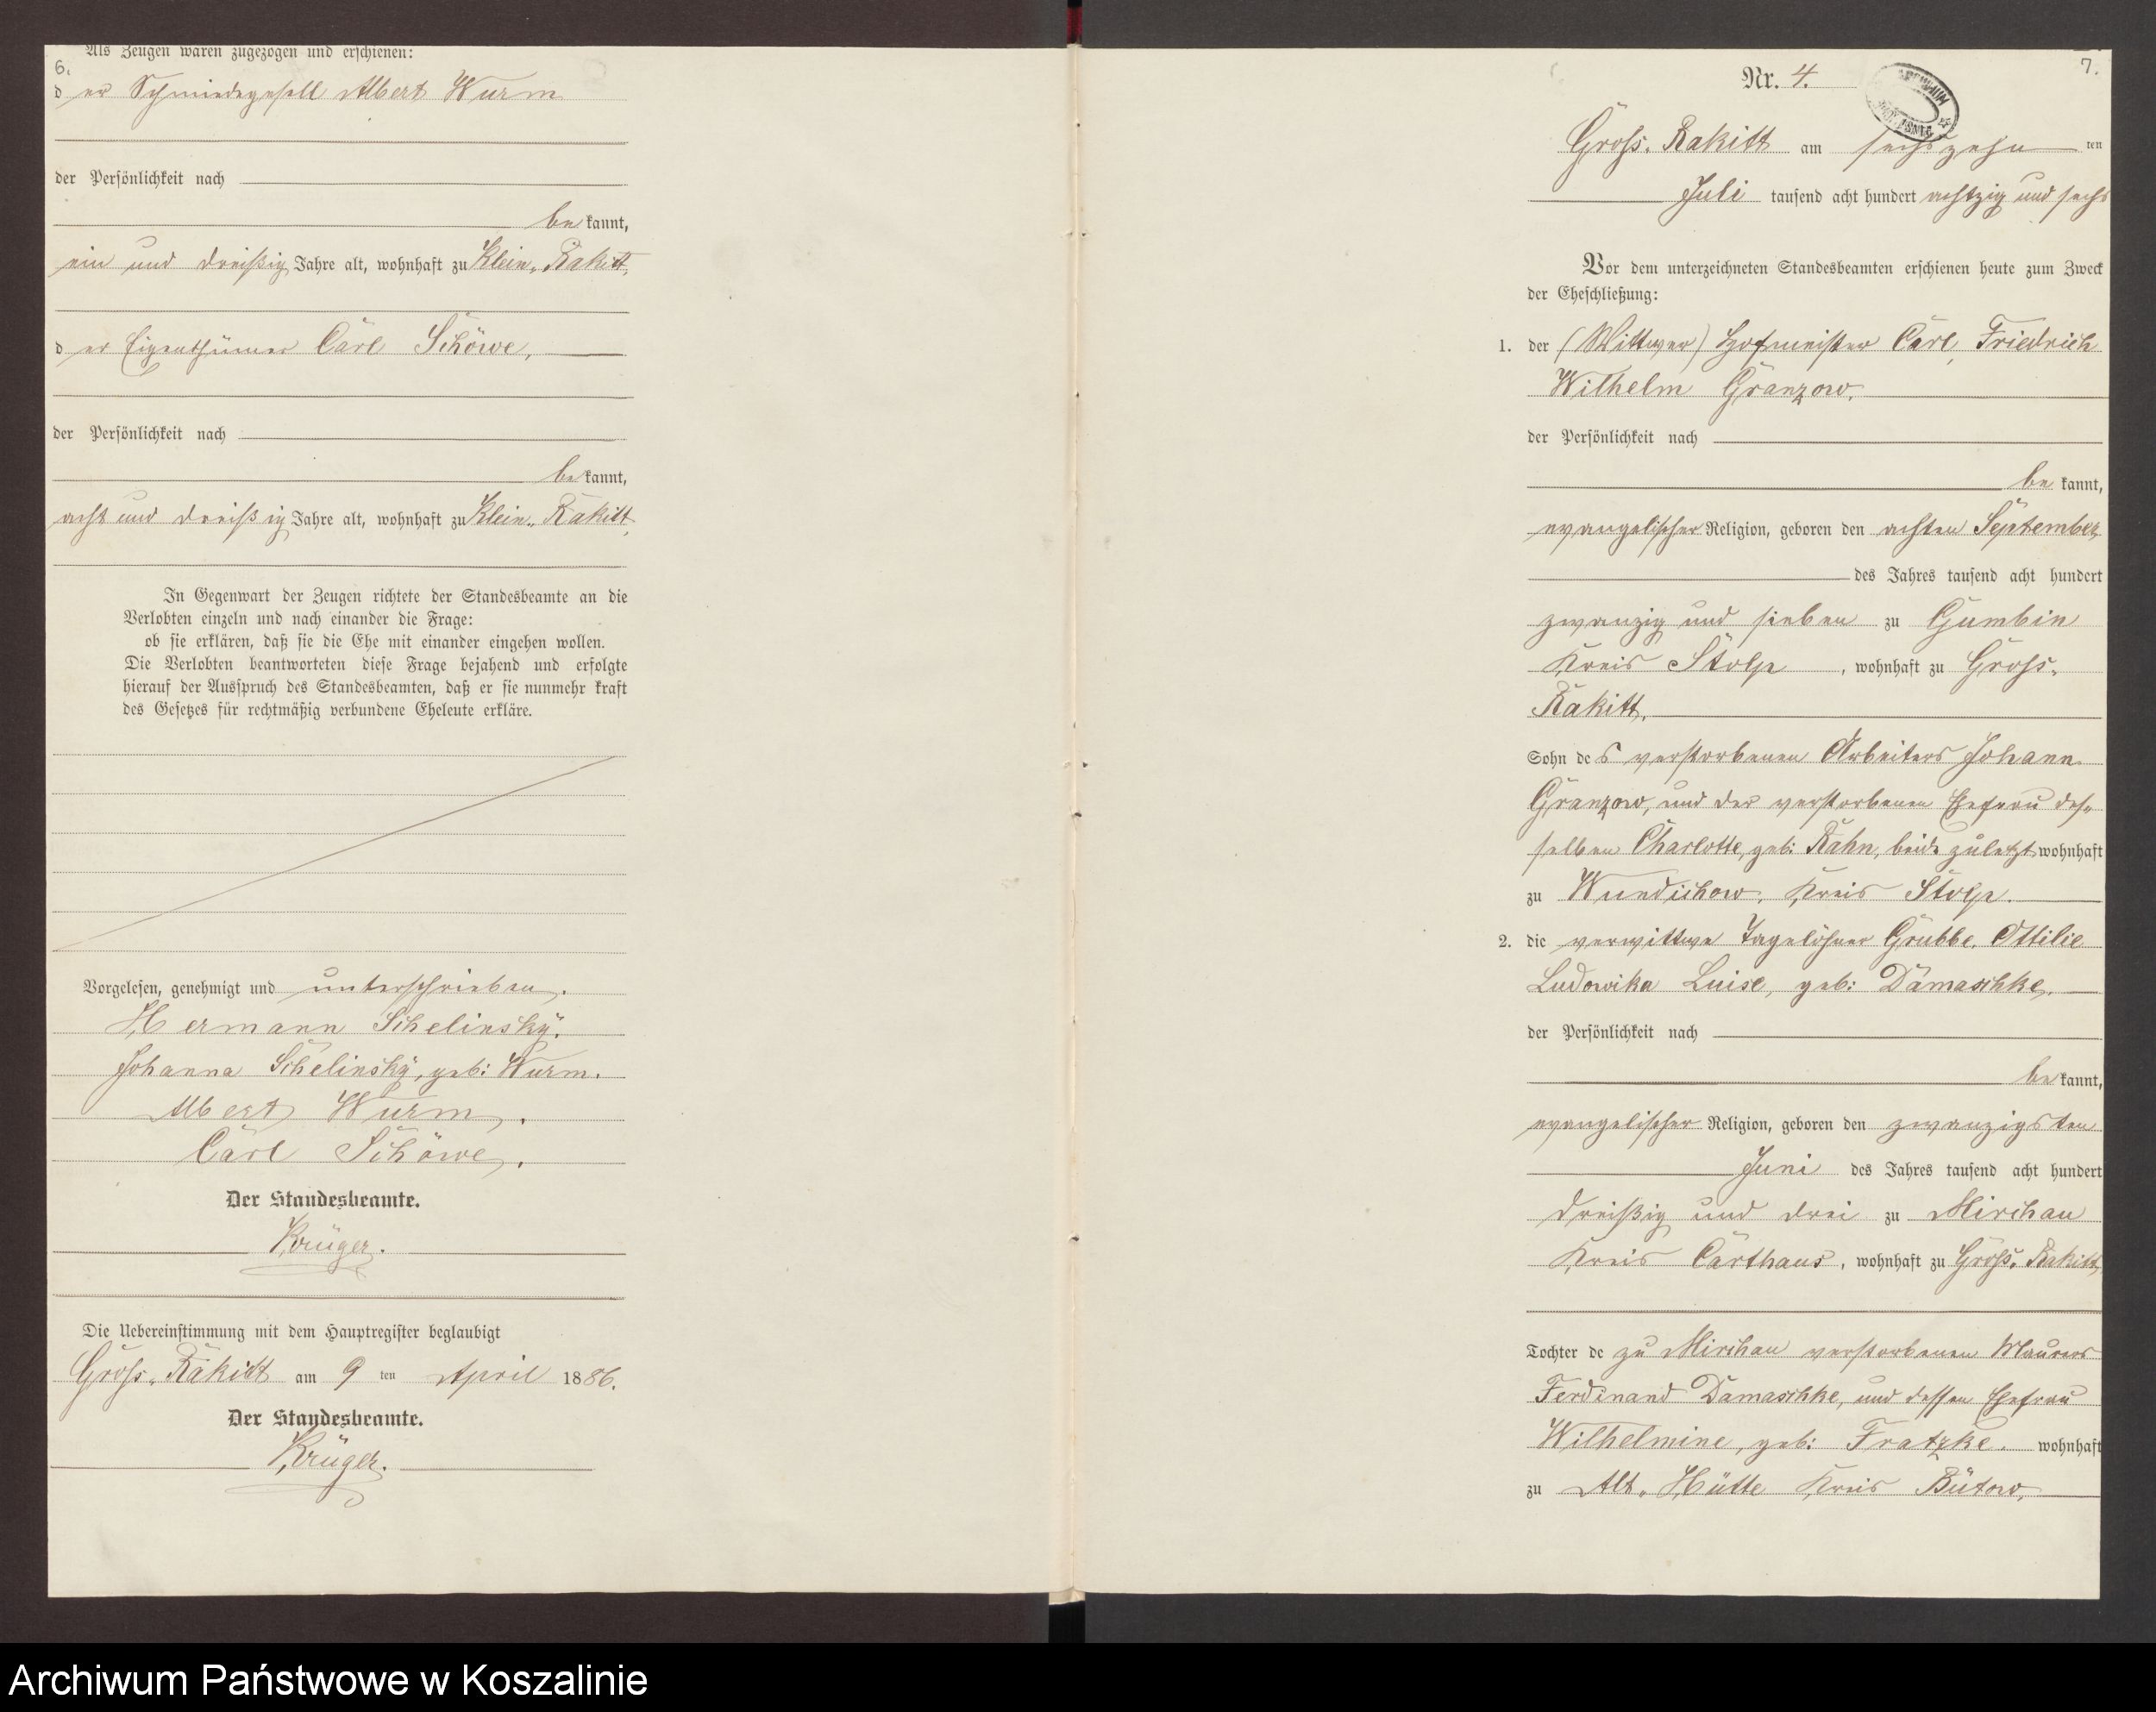 Als Zeugen waren zugezogen und erschienen:
6.
der Schmiedegesell Albert Wurm
der Persönlichkeit nach
bekannt,
ein und dreißig Jahre alt, wohnhaft zu Klein-Rakitt,
der Eigenthümer Carl Schöwe,
der Persönlichkeit nach
bekannt,
acht und dreißig Jahre alt, wohnhaft zu Klein-Rakitt,
In Gegenwart der Zeugen richtete der Standesbeamte an die
Verlobten einzeln und nach einander die Frage:
ob sie erklären, daß sie die Ehe mit einander eingehen wollen.
Die Verlobten beantworteten diese Frage bejahend und erfolgte
hierauf der Ausspruch des Standesbeamten, daß er sie nunmehr kraft
des Gesetzes für rechtmäßig verbundene Eheleute erkläre.
Vorgelesen, genehmigt und unterschrieben.
Hermann Schelinsky.
Johanna Schelinsky, geb: Wurm.
Albert Wurm.
Carl Schöwe.
Der Standesbeamte.
Krüger.
Die Uebereinstimmung mit dem Hauptregister beglaubigt
Groß-Rakitt am 9 ten April 1886.
Der Standesbeamte.
Krüger.
7.
Nr. 4.
Groß-Rakitt am sechszehn ten
Juli tausend acht hundert achtzig und sechs
Vor dem unterzeichneten Standesbeamten erschienen heute zum Zweck
der Eheschließung:
1. der (Wittwer) Hofmeister Carl, Friedrich
Wilhelm Granzow,
der Persönlichkeit nach
bekannt,
evangelischer Religion, geboren den achten September
des Jahres tausend acht hundert
zwanzig und sieben zu Gumbin
Kreis Stolp, wohnhaft zu Groß-
Rakitt,
Sohn des verstorbenen Arbeiters Johann
Granzow, und der verstorbenen Ehefrau des-
selben Charlotte, geb: Kahn, beide zuletzt wohnhaft
zu Wundichow, Kreis Stolp.
2. die verwittwe Tagelöhner Grubbe, Ottilie
Ludowika Luise, geb: Damaschke,
der Persönlichkeit nach
bekannt,
evangelischer Religion, geboren den zwanzigsten
Juni des Jahres tausend acht hundert
dreißig und drei zu Mirchau
Kreis Carthaus, wohnhaft zu Groß-Rakitt,
Tochter de zu Mirchau verstorbenen Maurers
Ferdinand Damaschke, und dessen Ehefrau
Wilhelmine, geb: Fratzke. wohnhaft
zu Alt-Hütte Kreis Bütow,
Archiwum Państwowe w Koszalinie